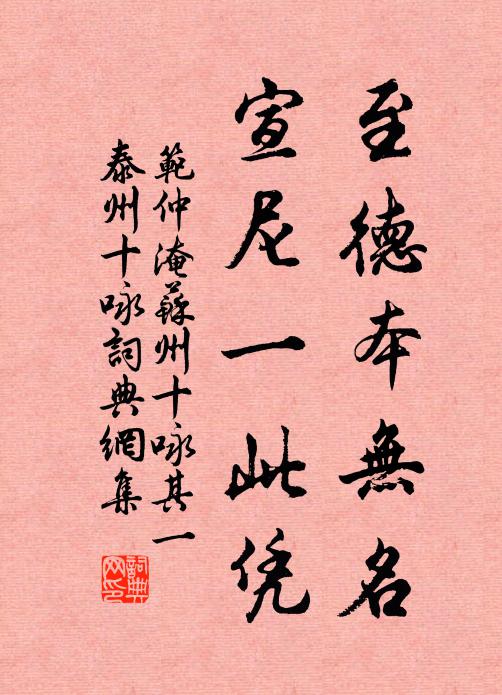 至德本無名
宣尼一此凭
範仲淹蘇州十咏其一
泰州十咏詞典網集
詞典網印